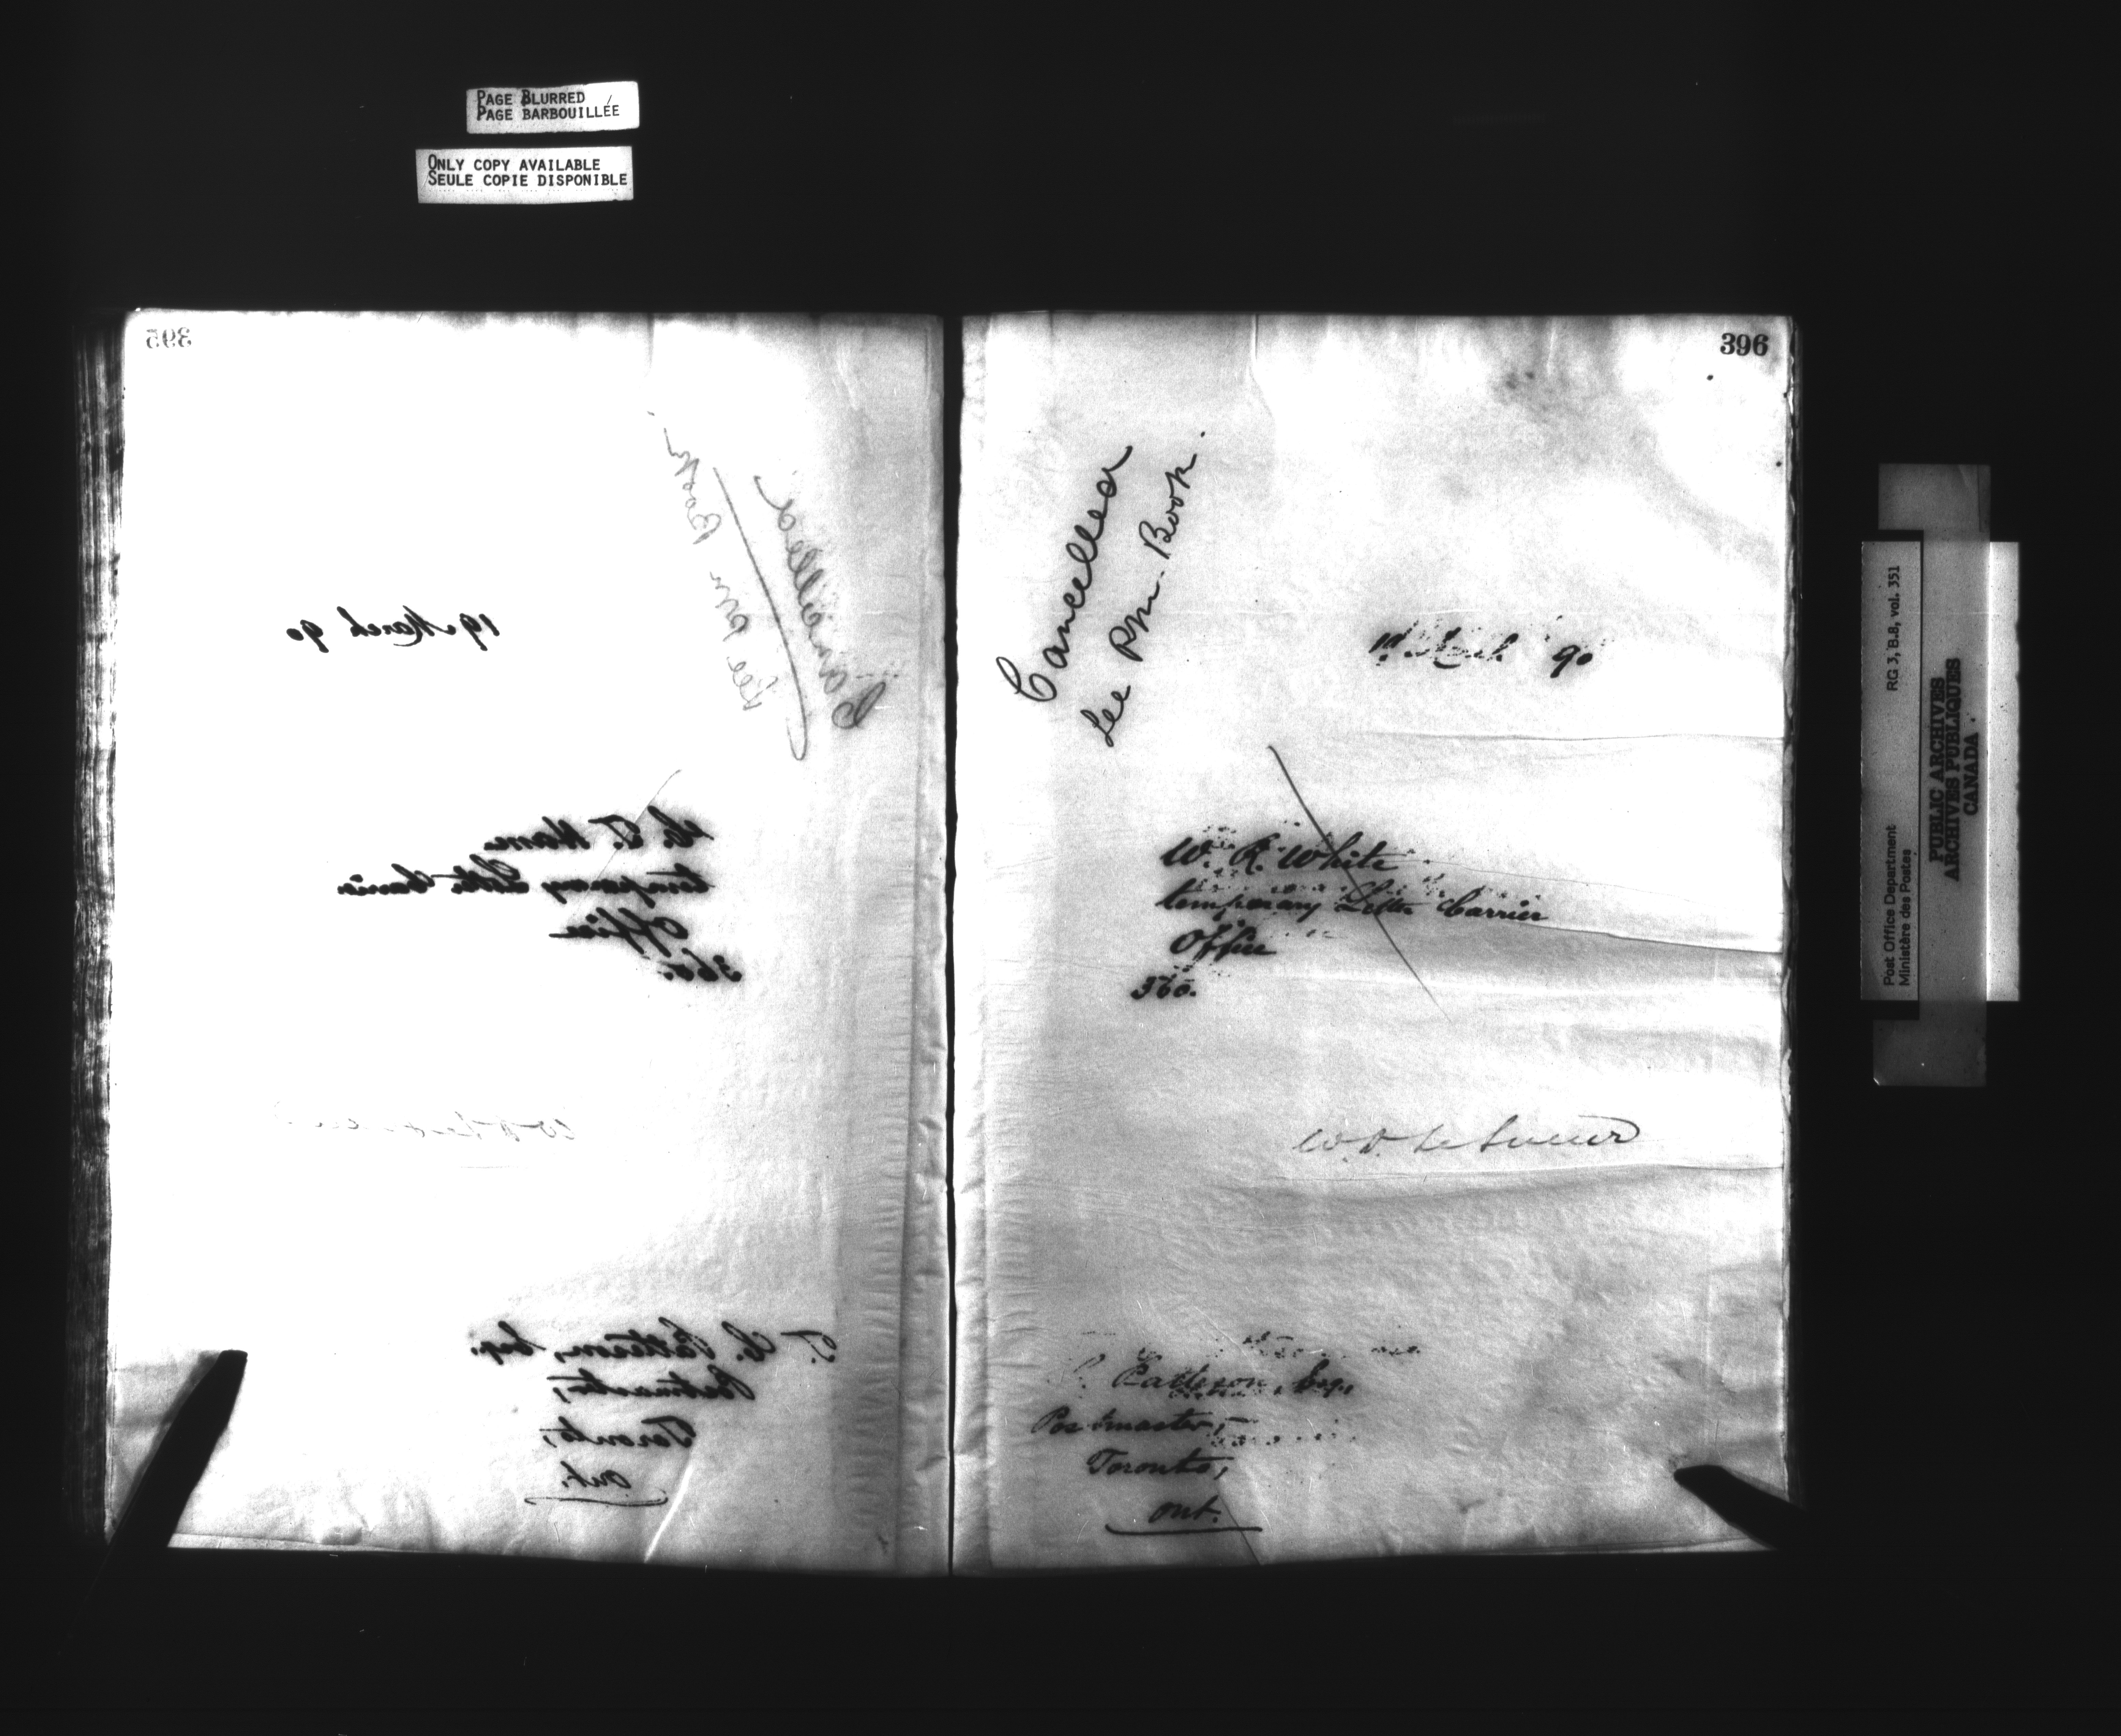 PAGE BLURRED
PAGE BARBOUILLÉE
ONLY COPY AVAILABLE
SEULE COPIE DISPONIBLE
395
Cancelled
See PM Book
19 March 90
temporary Letter Carrier
Office
360.
T. C. Patteson, Esq.
Postmaster,
Toronto,
Ont.
396
Cancelled
See PM. Book.
90
W. R. White
temporary Letter Carrier
Office
360.
W. D. Le Sueur
C. Patteson, Esq.,
Postmaster,
Toronto,
Ont.
Post Office Department
Ministère des Postes
RG 3, B.8, vol. 351
PUBLIC ARCHIVES
ARCHIVES PUBLIQUES
CANADA